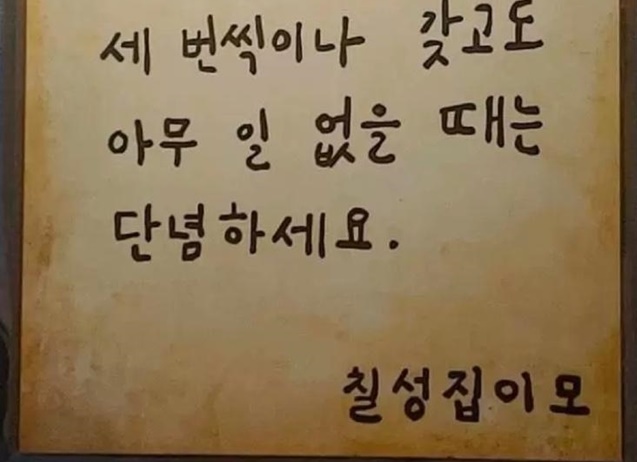 세 번씩이나 갖고도
아무 일 없을 때는
단념하세요.
칠성집이모